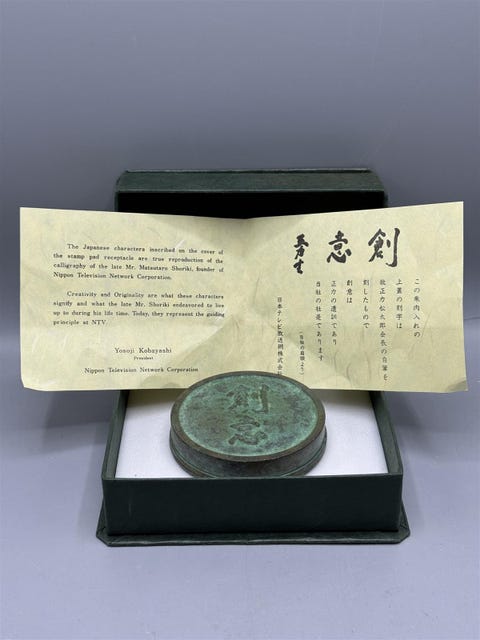 The Japanese characters inscribed on the cover of
the stamp pad receptacle are true reproduction of the
calligraphy of the late Mr. Matsutaro Shoriki, founder of
Nippon Television Network Corporation.
Creativity and Originality are what these characters
signify and what the late Mr. Shoriki endeavored to live
up to during his life time. Today, they represent the guiding
principle at NTV.
Yosoji Kobayashi
President
Nippon Television Network Corporation
創意
この朱肉入れの
上蓋の刻字は
故正力松太郎会長の自筆を
刻したもので
創意は
正力の遺訓であり
当社の社是であります
日本テレビ放送網株式会
創
意